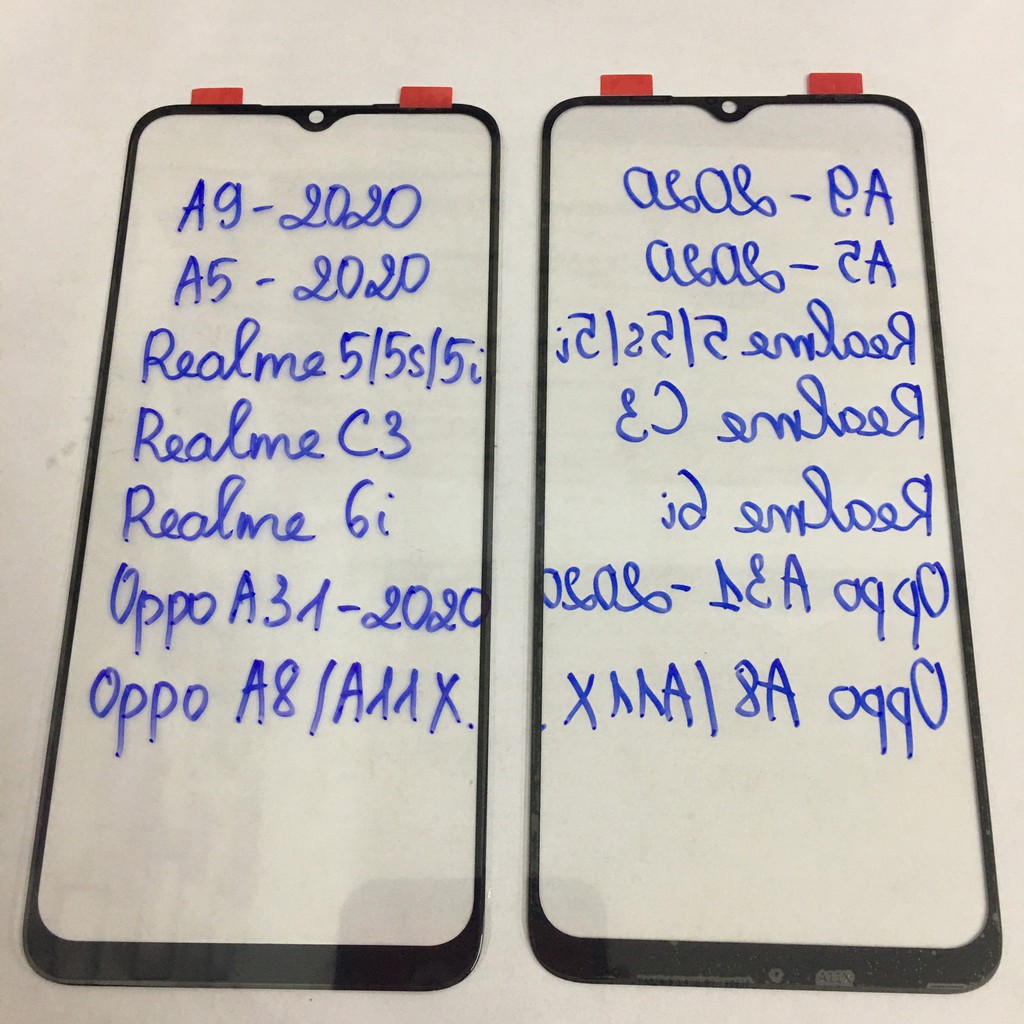 A9-2020
A5 - 2020
Realme 5/5s/5i
Realme C3
Realme 6i
Oppo A31-2020
Oppo A8/A11X.
A9-2020
A5-2020
Realme 5/5s/5i
Realme C3
Realme 6i
Oppo A31-2020
Oppo A8/A11X.